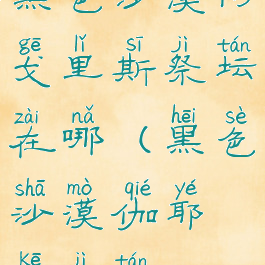 黑色沙漠
gē lǐ sī jì tán
戈里斯祭坛
zài nǎ hēi sè
在哪(黑色
shā mò qié yé
沙漠伽耶
kē jì tán